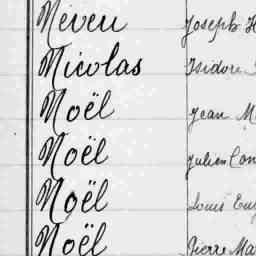 Neveu Joseph
Nicolas Isidore
Noël Jean
Noël Julien
Noël Louis
Noël Pierre